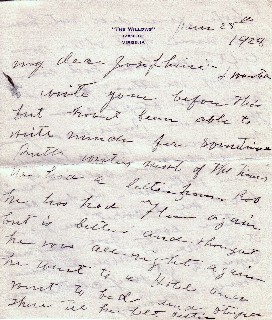 "THE WILLOWS"
VIRGINIA
June 25th
1929
My dear Josephine - I wanted
write you before this
but haven't been able to
write much for sometime
Ruth writes most of the time
has had a letter from Bob
he has had flu again
but is better and thought
he was all right again
he went to a Hotel once
went to bed and
there til he felt